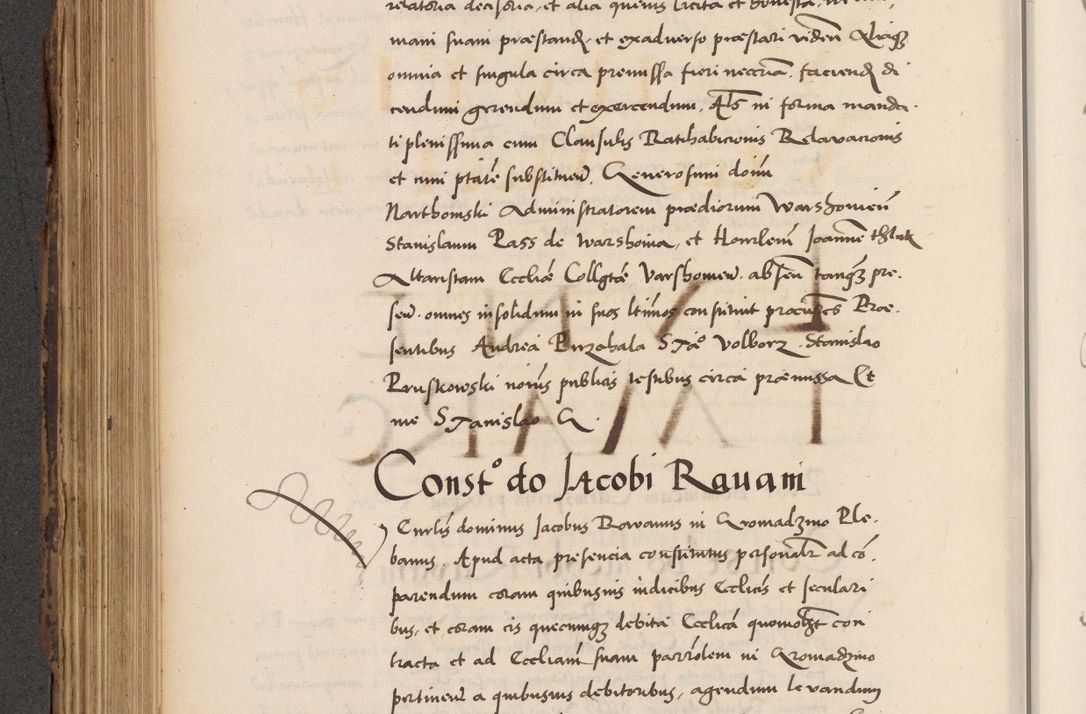 relatoria decisoria, et alia quevis licita et honesta
mam suam præstand, et exadverso præstari viden Aliaqz
omnia et singula circa premissa fieri necria. faciend di
cendum gerendum et exercendum. Als in forma manda-
ti plenissima cum Clausulis Ratihabicionis Relavacionis
et cum ptate substituen. Generosum dom
Narthomski Administratorem prædiorum Warshovien
Stanislaum Rass de Warshovia, et Honrlem Joannem
Altaristam Eccliæ Collgtæ Varshovien. absen tanqz pre-
sen. omnes insolidum in suos ltimos constituit procures Præ-
sentibus Andrea Burzohala S Tæ Volborz. Stanislao
Pruskowski noriis publicis testibus circa præmissa Et
me Stanislao G.
Const° do Jacobi Ravani
Eurlis dominus Jacobus Ravanus in Gromadzino Ple-
banus. Apud acta presencia constitutus personalr ad co-
parendum coram quibusvis iudicibus Ecclicis et seculari
bus, et coram eis quecunqz debita Ecclica quomolzt con
tracta et ad Eccliam suam parrolem in Gromadzino
pertinen a quibusvis debitoribus, agendum levandum